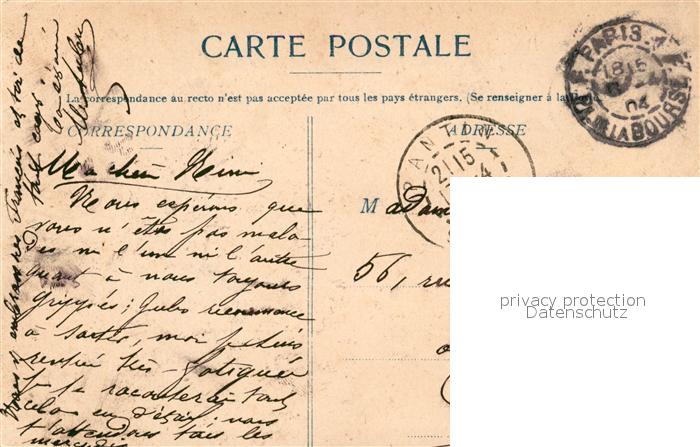 CARTE POSTALE
La correspondance au recto n'est pas acceptée par tous les pays étrangers. (Se renseigner à la
CORRESPONDANCE
ADRESSE
PARIS-1
18 15
04
PL. DE LA BOURSE
PANTIN
21 15
Ma chère Mimi
Nous espérons que
vous n'êtes pas mala
des ni l'une ni l'autre
quant à nous toujours
grippés; Jules recommence
à sortir, moi je suis
rentrée très fatiguée
je te raconterai tout
cela en détail; nous
t'attendons tous les
mercredis
Nous embrassons François et toi de
tout cœur
Madame
56, ru
privacy protection
Datenschutz